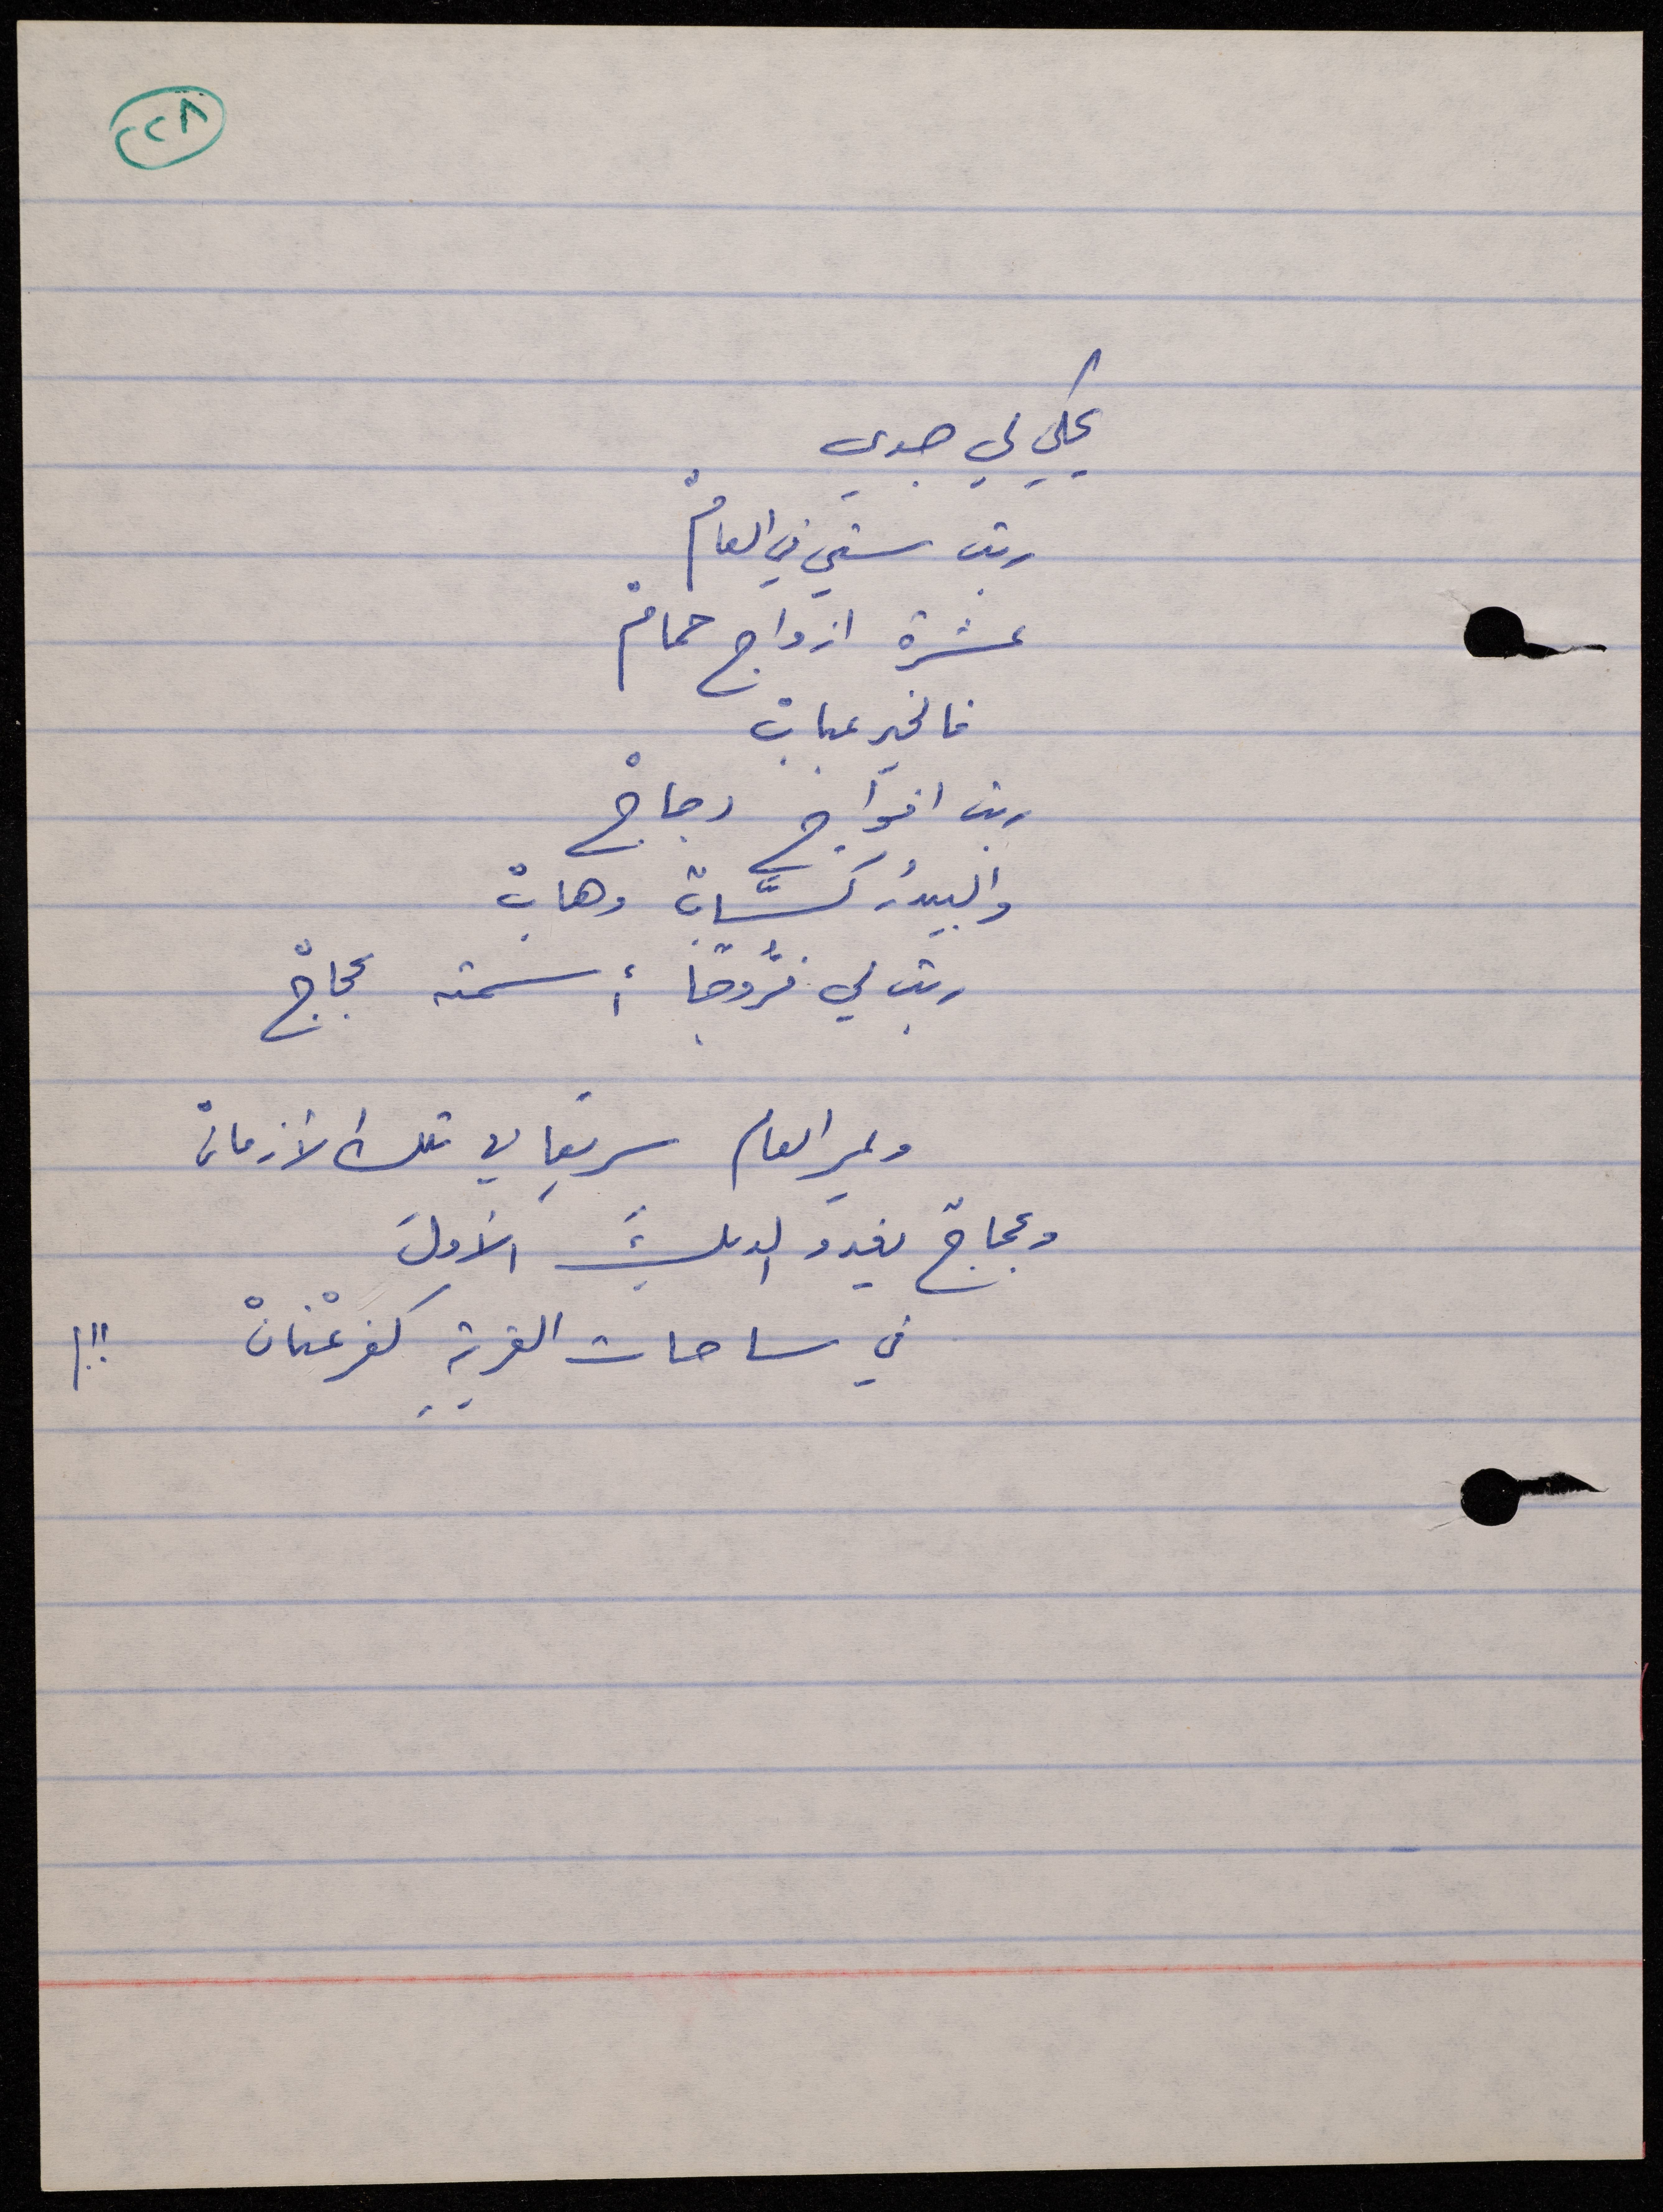 ٢٢٨
يحكي لي جدي
ربت ستي في العامْ
عشرة ازواج حمامْ
فالخير عبابْ
ربت افواج دجاجْ
والبيدرُ كسَّابْ وهابْ
ربت لي فرُّوجًا أسمته عجاجْ
ويمر العام سريعا في تلك الأزمانْ
وعجاجْ يغدو الديك الأولَ
في ساحات القرية كفر عْنانْ !!!